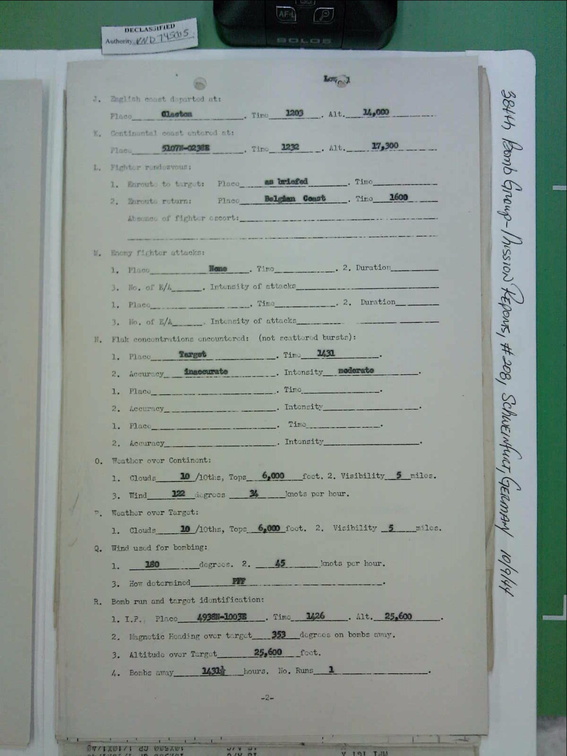 DECLASSIFIED
Authority
AF-L
Low
J. English coast departed at:
Place Clacton, Time 1203, Alt. 14,000
K. Continental coast entered at:
Place 5107N-0238E, Time 1232, Alt. 17,300
L. Fighter rendezvous:
1. Enroute to target: Place as briefed, Time
2. Enroute return: Place Belgian Coast, Time 1600
Absence of fighter escort:
M. Enemy fighter attacks:
1. Place None, Time, 2. Duration
3. No. of E/A, Intensity of attacks
1. Place, Time, 2. Duration
3. No. of E/A, Intensity of attacks
N. Flak concentrations encountered: (not scattered bursts):
1. Place Target, Time 1431.
2. Accuracy inaccurate, Intensity moderate
1. Place, Time.
2. Accuracy, Intensity.
1. Place, Time.
2. Accuracy, Intensity.
O. Weather over Continent:
1. Clouds 10 /10ths, Tops 6,000 feet. 2. Visibility 5 miles.
3. Wind 122 degrees 34 knots per hour.
P. Weather over Target:
1. Clouds 10 /10ths, Tops 6,000 feet. 2. Visibility 5 miles.
Q. Wind used for bombing:
1. 180 degrees. 2. 45 knots per hour.
3. How determined PFF.
R. Bomb run and target identification:
1. I.P. Place 4938N-1003E, Time 1426, Alt. 25,600
2. Magnetic Heading over target 353 degrees on bombs away.
3. Altitude over Target 25,600 feet.
4. Bombs away 1431½ hours. No. Runs 1.
-2-
384th Bomb Group-Mission Reports, #208, Schweinfurt, German 10/9/44